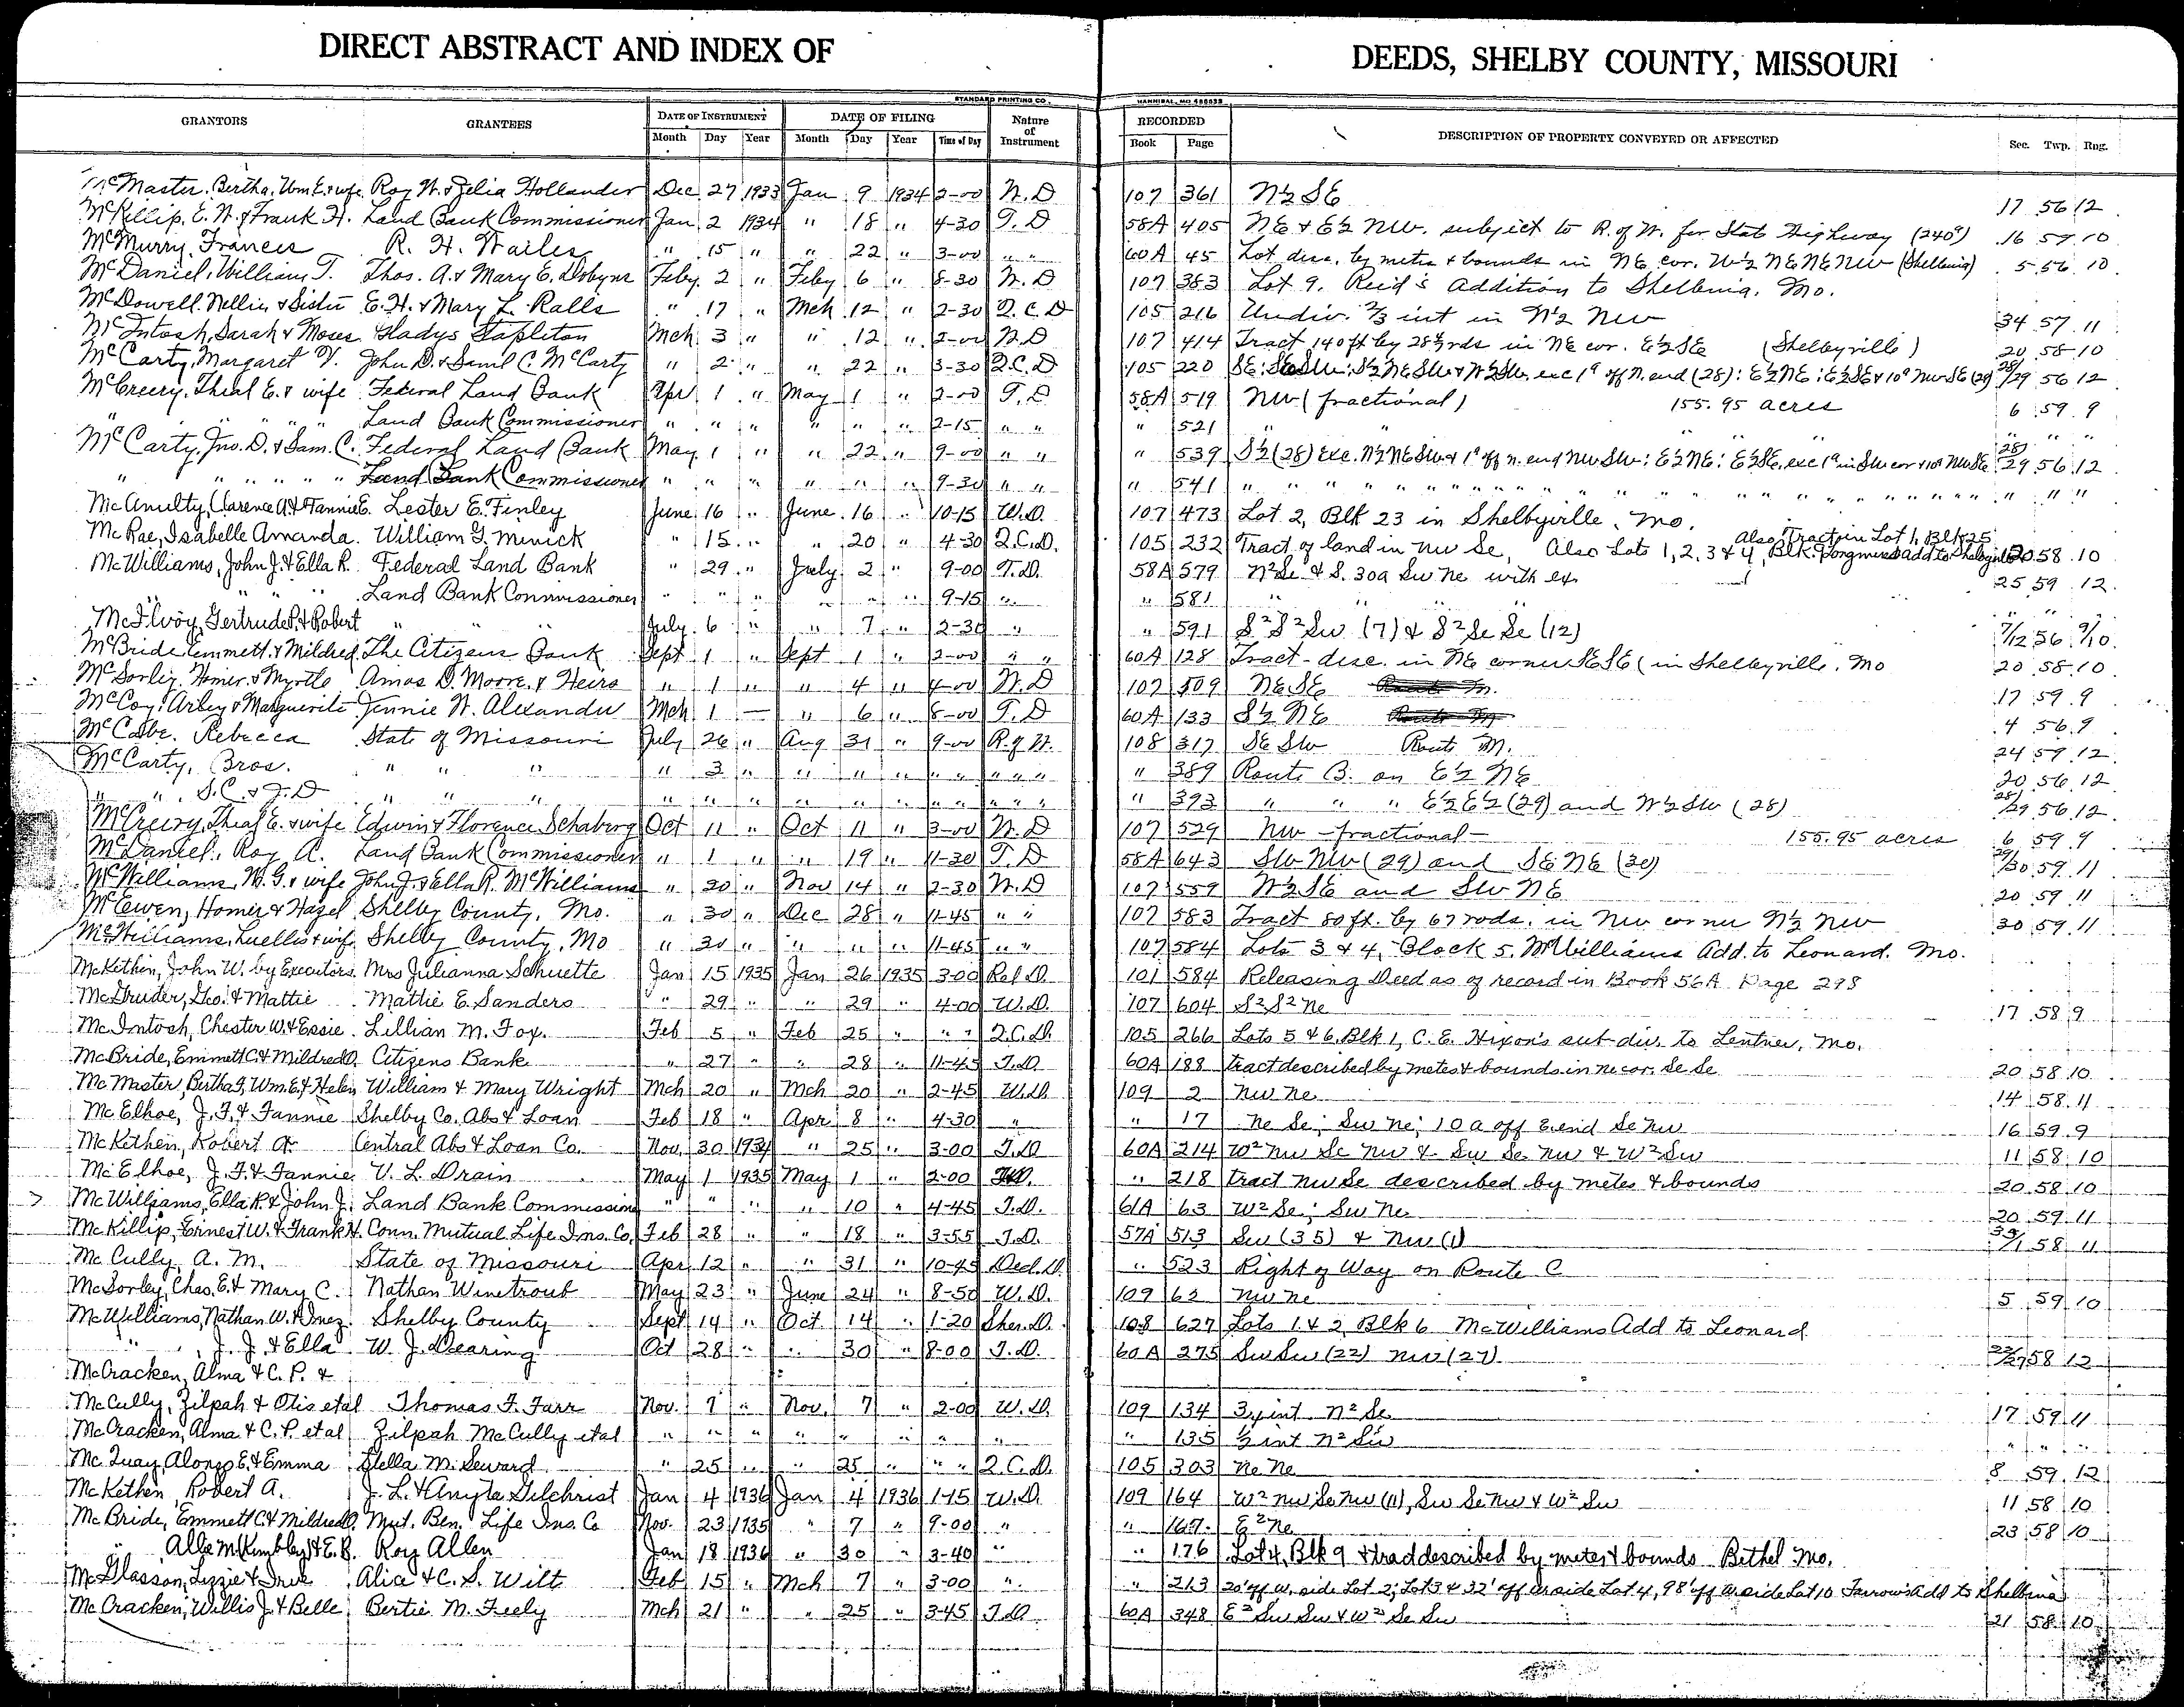 DIRECT ABSTRACT AND INDEX OF DEEDS, SHELBY COUNTY, MISSOURI
STANDARD PRINTING CO. HANNIBAL, MO
GRANTORS GRANTEES DATE OF INSTRUMENT DATE OF FILING Nature of Instrument RECORDED DESCRIPTION OF PROPERTY CONVEYED OR AFFECTED Sec. Twp. Rng.
Month Day Year Month Day Year Time of Day Book Page
McMaster, Bertha, Wm E. & wife Roy W. & Zelia Hollander Dec 27 1933 Jan 9 1934 2-00 W.D 107 361 N½ SE 17 56 12
McKillip, E. W. & Frank H. Land Bank Commissioner Jan 2 1934 " 18 " 4-30 T.D 58A 405 NE & E½ NW. subject to R. of W. for State Highway (240ª) 16 59 10
McMurry, Frances R. H. Wailes " 15 " " 22 " 3-00 " " 60A 45 Lot desc. by metes & bounds in NE cor. W½ NE NE NW (Shelbina) 5 56 10
McDaniel, William T. Thos. A. & Mary E. Dobyns Feby 2 " Feby 6 " 8-30 W.D 107 383 Lot 9, Reid's Addition to Shelbina, Mo.
McDowell, Nellie & Sister E. H. & Mary L. Ralls " 17 " Mch 12 " 2-30 Q.C.D 105 216 Undiv. ⅔ int in N½ NW 34 57 11
McIntosh, Sarah & Moses Gladys Stapleton Mch 3 " " 12 " 2-00 W.D 107 414 Tract 140 ft by 28½ rds in NE cor. E½ SE (Shelbyville) 20 58 10
McCarty, Margaret V. John D. & Saml C. McCarty " 2 " " 22 " 3-30 Q.C.D 105 220 SE: SESW: S½ NE SW & N½ SW exc 1ª off N. end (28): E½ NE: E½ SE & 10ª NW SE (29) 28/29 56 12
McCreery, Theal E. & wife Federal Land Bank Apr 1 " May 1 " 2-00 T.D 58A 519 NW (fractional) 155.95 acres 6 59 9
" " " " Land Bank Commissioner " " " " " " 2-15 " " " 521 " " " " "
McCarty, Jno. D. & Sam. C. Federal Land Bank May 1 " " 22 " 9-00 " " " 539 S½ (28) exc. N½ NE SW & 1ª off n. end NW SW: E½ NE: E½ SE, exc 1ª in SW cor & 10ª NW SE 28/29 56 12
" " " " " Land Bank Commissioner " " " " " " 9-30 " " " 541 " " " " " " " " " " " "
McAnulty, Clarence A. & Fannie E. Lester E. Finley June 16 " June 16 " 10-15 W.D. 107 473 Lot 2, Blk 23 in Shelbyville, Mo.
McRae, Isabelle Amanda. William G. Minick " 15 " " 20 " 4-30 Q.C.D. 105 232 Tract of land in NW Se, Also Lots 1, 2, 3 & 4, Blk. add to Shelbyville 20 58 10
Also Tract in Lot 1, Blk 25
McWilliams, John J. & Ella R. Federal Land Bank " 29 " July 2 " 9-00 T.D. 58A 579 N²Se & S. 30a Sw Ne with ex 25 59 12
" " " Land Bank Commissioner " " " " " " 9-15 " " 581 " " " " "
McIlvoy, Gertrude P. & Robert " " " July 6 " " 7 " 2-30 " " 591 S²S²Sw (7) & S²Se Se (12) 7/12 56 9/10
McBride, Emmett & Mildred The Citizens Bank Sept 1 " Sept 1 " 2-00 " " 60A 128 Tract - desc. in NE corner SESE (in Shelbyville, Mo 20 58 10
McSorley, Homer & Myrtle Amos D. Moore, & Heirs " 1 " " 4 " 4-00 W.D 107 509 NE SE 17 59 9
McCoy, Arley & Marguerite Jennie W. Alexander Mch 1 — " 6 " 8-00 T.D 60A 133 S½ NE 4 56 9
McCabe, Rebecca State of Missouri July 26 " Aug 31 " 9-00 R.of W. 108 317 SE SW Route M. 24 59 12
McCarty, Bros. " " " " 3 " " " " " " " " " 389 Route B. on E½ NE 20 56 12
" , S.C. & J.D " " " " " " " " " " " " " " 393 " " " E½ E½ (29) and W½ SW (28) 28/29 56 12
McCreery, Theal E. & wife Edwin & Florence Schaberg Oct 11 " Oct 11 " 3-00 W.D 107 529 NW — fractional — 155.95 acres 6 59 9
McDaniel, Roy A. Land Bank Commissioner " 1 " " 19 " 11-30 T.D 58A 643 SW NW (29) and SE NE (30) 29/30 59 11
McWilliams, W. G. & wife John J. & Ella R. McWilliams " 20 " Nov 14 " 2-30 W.D 107 559 W½ SE and SW NE 20 59 11
McEwen, Homer & Hazel Shelby County, Mo. " 30 " Dec 28 " 11-45 " " 107 583 Tract 80 ft. by 67 rods. in NW corner N½ NW 30 59 11
McWilliams, Luellis & wife Shelby County, Mo " 30 " " " " 11-45 " " 107 584 Lots 3 & 4, Block 5, McWilliams Add. to Leonard, Mo.
McKethen, John W. by Executors. Mrs Julianna Schuette Jan 15 1935 Jan 26 1935 3-00 Rel D. 101 584 Releasing Deed as of record in Book 56A Page 298
McGruder, Geo. & Mattie Mattie E. Sanders " 29 " " 29 " 4-00 W.D. 107 604 S²S²Ne 17 58 9
McIntosh, Chester W. & Essie. Lillian M. Fox. Feb 5 " Feb 25 " " " Q.C.D. 105 266 Lots 5 & 6, Blk 1, C. E. Hixon's sub-div. to Lentner, Mo.
McBride, Emmett C. & Mildred O. Citizens Bank " 27 " " 28 " 11-45 T.D. 60A 188 tract described by metes & bounds in ne cor. Se Se 20 58 10
McMaster, Bertha G, Wm. E. & Helen William & Mary Wright Mch 20 " Mch 20 " 2-45 W.D. 109 2 NW Ne 14 58 11
McElhoe, J. F. & Fannie Shelby Co. Abs & Loan Feb 18 " Apr 8 " 4-30 " " 17 Ne Se; Sw Ne; 10 a off E. end Se NW 16 59 9
McKethen, Robert A. Central Abs & Loan Co. Nov. 30 1934 " 25 " 3-00 T.D 60A 214 W² NW Se NW & Sw Se NW & W² Sw 11 58 10
McElhoe, J. F. & Fannie V. L. Drain May 1 1935 May 1 " 2-00 " 218 tract NW Se described by metes & bounds 20 58 10
McWilliams, Ella R. & John J. Land Bank Commissione " " " " 10 " 4-45 T.D. 61A 63 W² Se; Sw Ne 20 59 11
McKillip, Ernest W. & Frank H. Conn. Mutual Life Ins. Co. Feb 28 " " 18 " 3-55 T.D. 57A 513 Sw (35) & NW (1) 35/1 58 11
McCully, A. M. State of Missouri Apr 12 " " 31 " 10-45 Ded. D. " 523 Right of Way on Route C
McSorley, Chas. E. & Mary C. Nathan Winetroub May 23 " June 24 " 8-50 W.D. 109 63 NW Ne 5 59 10
McWilliams, Nathan W. & Inez Shelby County Sept 14 " Oct 14 " 1-20 Sher. D. 108 627 Lots 1 & 2 Blk 6 McWilliams Add to Leonard
" , J. J. & Ella W. J. Dearing Oct 28 " " 30 " 8-00 T.D. 60A 275 Sw Sw (22) NW (27) 22/27 58 12
McCracken, Alma & C. P. &
McCully, Zilpah & Otis etal Thomas F. Farr Nov. 7 " Nov. 7 " 2-00 W.D. 109 134 int. N² Se 17 59 11
McCracken, Alma & C. P. etal Zilpah McCully etal " " " " " " " " " 135 ½ int N² Sw " " "
McQuay, Alonzo E. & Emma Stella M. Seward " 25 " " 25 " " " Q.C.D. 105 303 Ne Ne 8 59 12
McKethen, Robert A. J. L. & Anyta Gilchrist Jan 4 1936 Jan 4 1936 1-15 W.D. 109 164 W² NW Se NW (11), Sw Se NW & W² Sw 11 58 10
McBride, Emmett C. & Mildred O. Mut. Ben. Life Ins. Co Nov. 23 1935 " 7 " 9-00 " " 167 E² Ne 23 58 10
" Alle M (Kimbley) & E. B. Roy Allen Jan 18 1936 " 30 " 3-40 " " 176 Lot 4, Blk 9 & tract described by metes & bounds Bethel Mo.
McGlasson, Lizzie & Alice & C. S. Wilt Feb 15 " Mch 7 " 3-00 " " 213 20' off W. side Lot 2; Lot 3 & 32' off W side Lot 4, 98' off W side Lot 10 Farrow's Add to Shelbina
McCracken, Willis J. & Belle Bertie M. Feely Mch 21 " " 25 " 3-45 T.D. 60A 348 E² Sw Sw & W² Se Sw 21 58 10